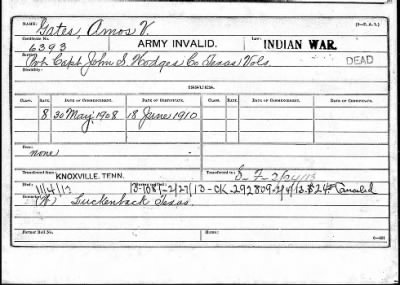 NAME: Gates, Amos V. (3—P. A. 5.)
Certificate No. 6393 ARMY INVALID. Law: INDIAN WAR.
Service: Pvt Capt John S Hodges Co Texas Vols. DEAD
Disability:
ISSUES.
CLASS. RATE. DATE OF COMMENCEMENT. DATE OF CERTIFICATE. CLASS. RATE. DATE OF COMMENCEMENT. DATE OF CERTIFICATE.
8 30 May 1908 18 June 1910
Fees:
none
Transferred from KNOXVILLE, TENN. Transferred to
Died: 11/4/12
(W) Luckenback Texas.
Former Roll No. Home: